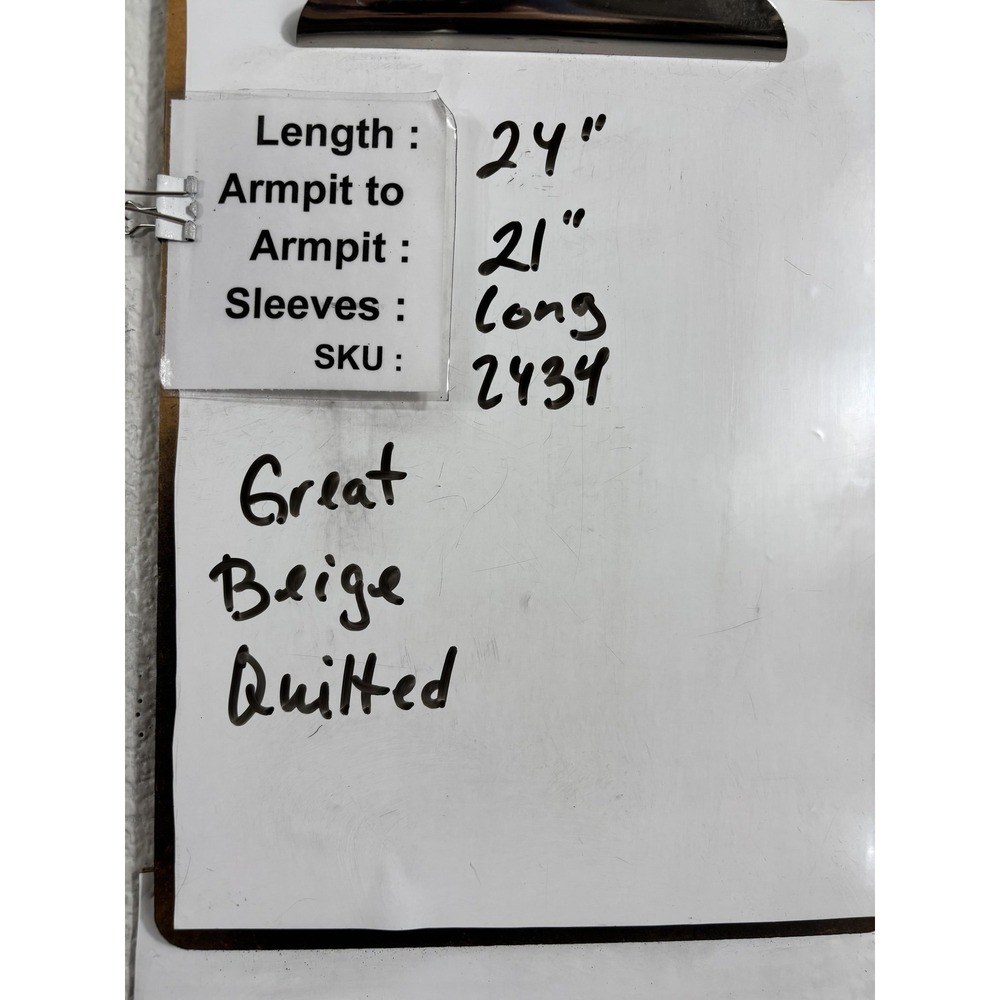 Length : 24"
Armpit to
Armpit : 21"
Sleeves : Long
SKU : 2434
Great
Beige
Quilted